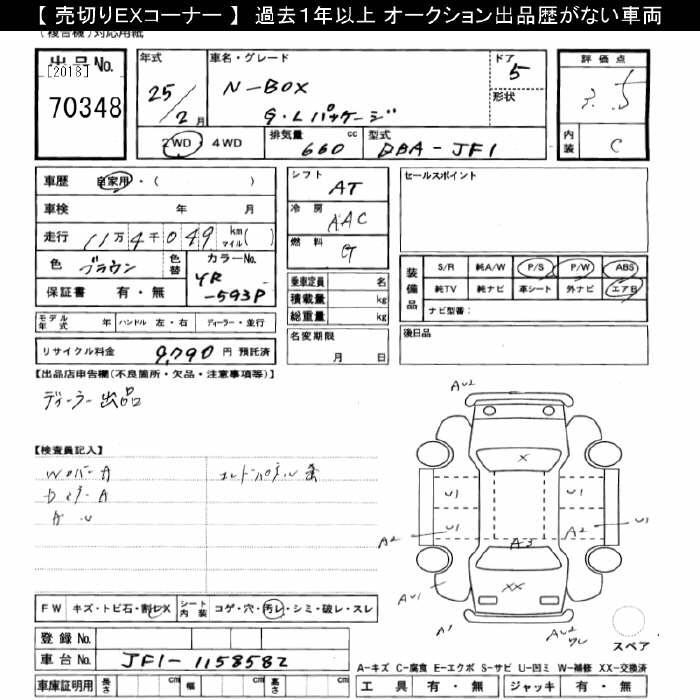 【 売切りEXコーナー 】 過去1年以上 オークション出品歴がない車両
(複合機)対応用紙
出品No.
[2018]
70348
年式
25/2月
車名・グレード
N-BOX
G・Lパッケージ
ドア
5
形状
評価点
3.5
内装
C
2WD・4WD
排気量 cc
660
型式
DBA-JF1
車歴 自家用・( )
車検 年 月
走行 11万4千049 km マイル( )
色 ブラウン
色替
カラーNo.
YR-593P
保証書 有・無
シフト AT
冷房 AAC
燃料 G
乗車定員 名
積載量 kg
総重量 kg
名変期限
月 日
セールスポイント
装備品
S/R 純A/W P/S P/W ABS
純TV 純ナビ 革シート 外ナビ エアB
ナビ型番:
後日品
モデル年式 年 ハンドル 左・右 ディーラー・並行
リサイクル料金 9,790 円 預託済
【出品店申告欄(不良箇所・欠品・注意事項等)】
ディーラー出品
【検査員記入】
コアサポ
AU2
X
U1 U1
U1
A2 A2 U1
A3
XX
AU1 AU1
A1
AU2
FW キズ・トビ石・割レX シート内装 コゲ・穴・汚レ・シミ・破レ・スレ
スペア
登録No.
車台No. JF1-1158582
A-キズ C-腐食 E-エクボ S-サビ U-凹ミ W-補修 XX-交換済
車庫証明用 長さ cm 幅 cm 高さ cm
工具 有・無 ジャッキ 有・無